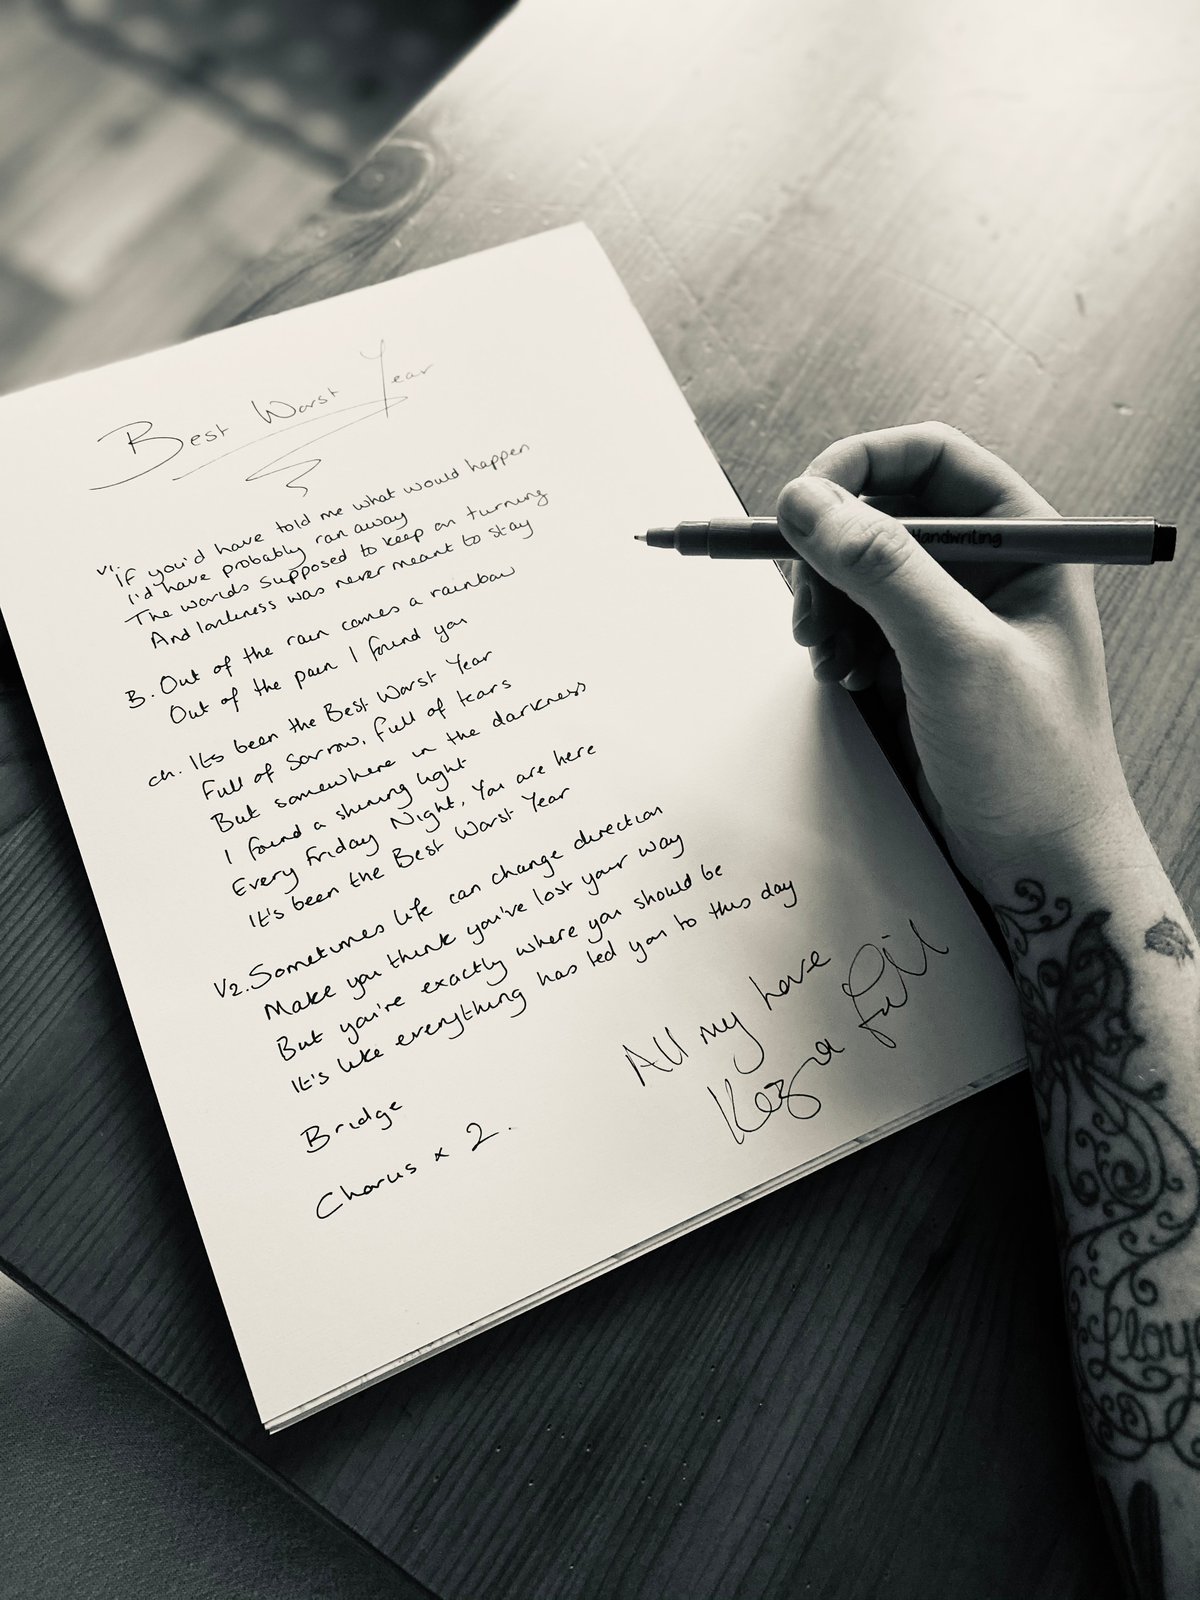 Best Worst Year
V1. If you'd have told me what would happen
I'd have probably ran away
The worlds supposed to keep on turning
And loneliness was never meant to stay
B. Out of the rain comes a rainbow
Out of the pain I found you
ch. Its been the Best Worst Year
Full of Sorrow, full of tears
But somewhere in the darkness
I found a shining light
Every Friday Night, You are here
It's been the Best Worst Year
V2. Sometimes life can change direction
Make you think you've lost your way
But you're exactly where you should be
It's like everything has led you to this day
Bridge
Chorus x 2.
All my love
Kezia
Handwriting